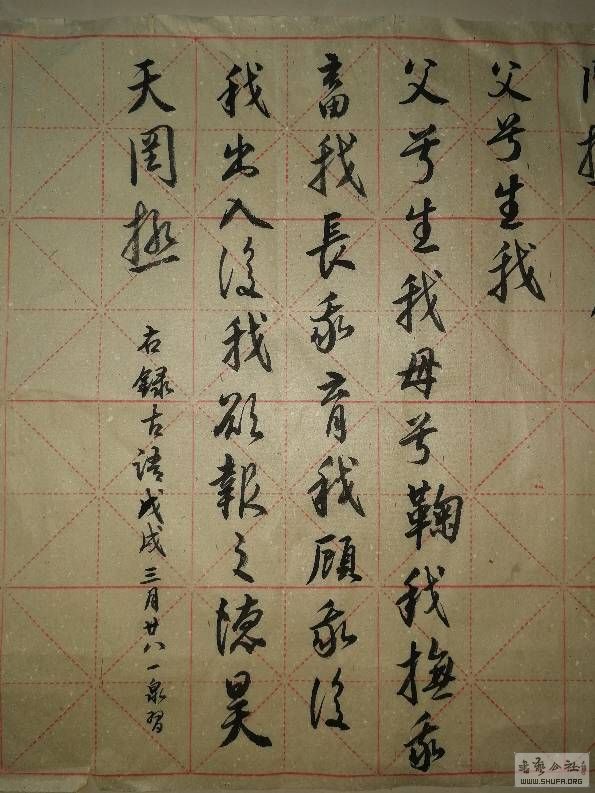 父兮生我
父兮生我母兮鞠我撫我
畜我長我育我顧我復
我出入復我欲報之德昊
天罔極
右錄古詩戊戌三月廿八一泉習
書藝公社
WWW.SHUFA.ORG